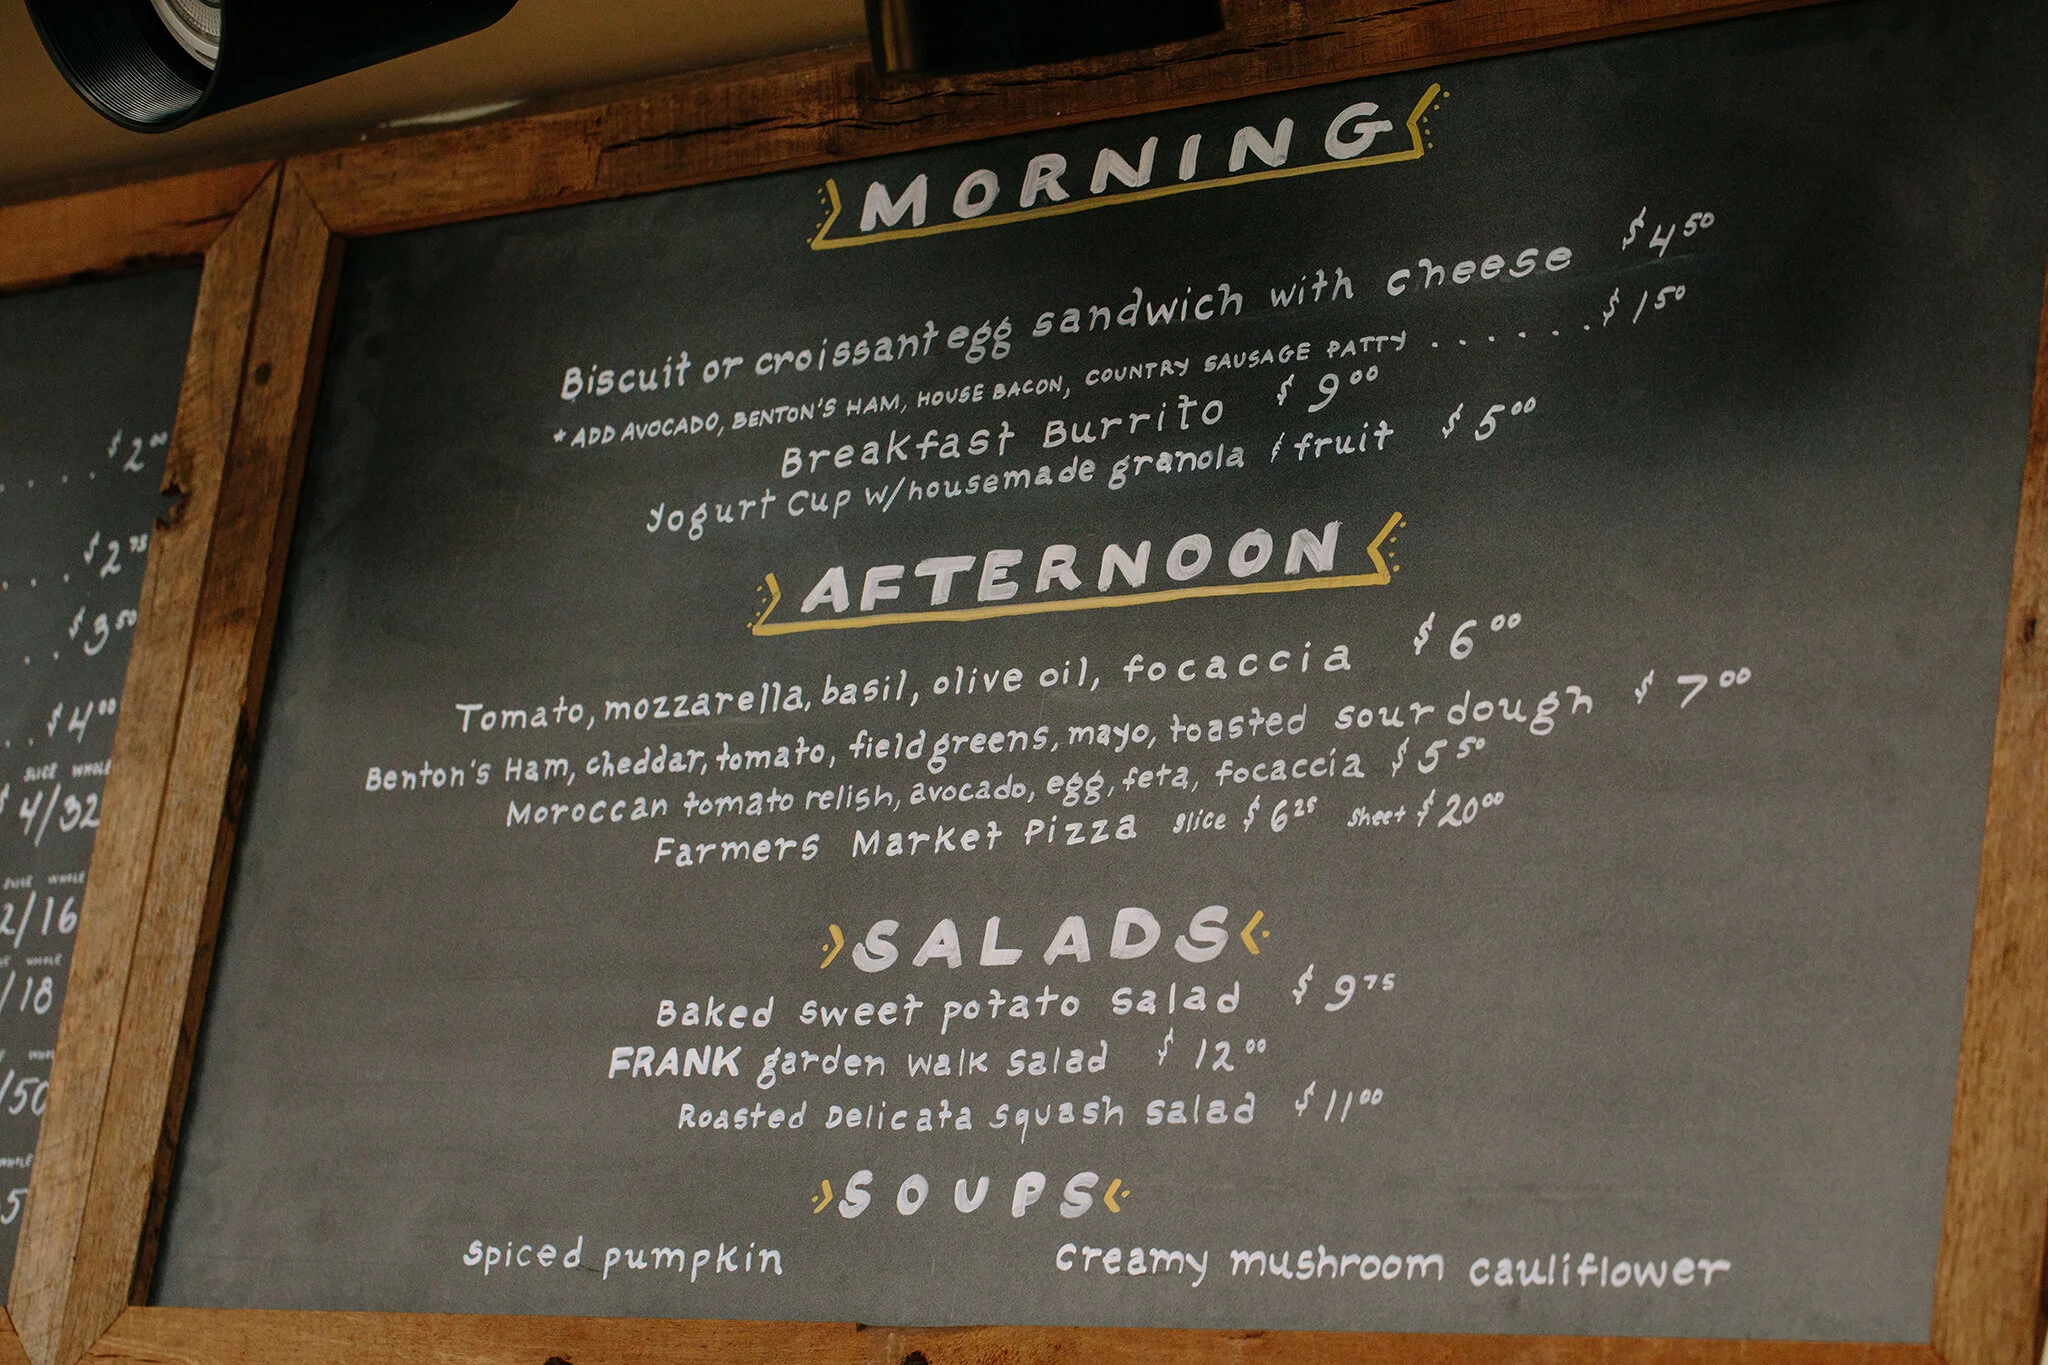 $2.00
$2.75
$3.50
$4.00
SLICE WHOLE
$4/32
SLICE WHOLE
2/16
WHOLE
/18
/50
WHOLE
5
MORNING
Biscuit or croissant egg sandwich with cheese $4.50
* ADD AVOCADO, BENTON'S HAM, HOUSE BACON, COUNTRY SAUSAGE PATTY . . . . . . . $1.50
Breakfast Burrito $9.00
Yogurt Cup w/housemade granola & fruit $5.00
AFTERNOON
Tomato, mozzarella, basil, olive oil, focaccia $6.00
Benton's Ham, cheddar, tomato, field greens, mayo, toasted sourdough $7.00
Moroccan tomato relish, avocado, egg, feta, focaccia $5.50
Farmers Market Pizza slice $6.25 sheet $20.00
SALADS
Baked sweet potato salad $9.75
FRANK garden walk salad $12.00
Roasted Delicata squash salad $11.00
SOUPS
spiced pumpkin creamy mushroom cauliflower